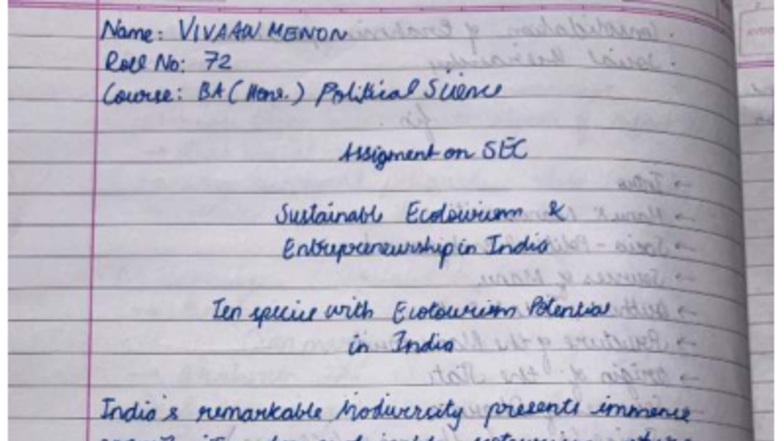 Name: VIVAAN MENON
Roll No: 72
Course: BA (Hons.) Political Science
Assigment on SEC
Sustainable Ecotourism &
Entrepreneurship in India
Ten species with Ecotourism Potential
in India
India's remarkable biodivercity presents immence